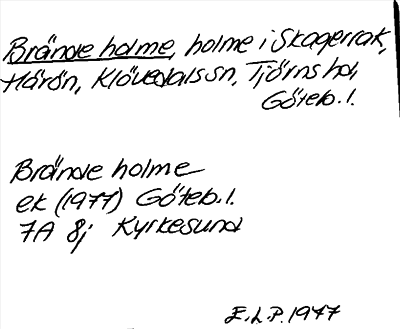 Brände holme, holme i Skagerrak,
Härön, Klövedals sn, Tjörns hd,
Göteb. l.
Brände holme
ek (1977) Göteb. l.
7A 8j Kyrkesund
E.L.P. 1977